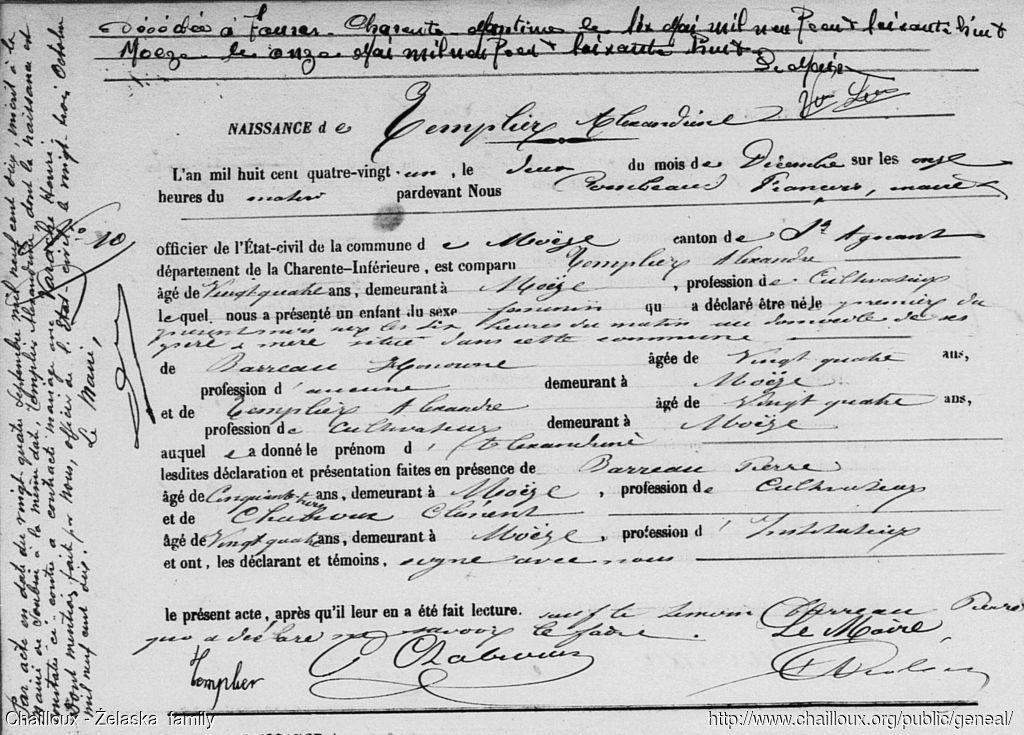 Décédée à Fouras Charente Maritime le six Mai mil neuf cent soixante huit
Moëze le onze Mai mil neuf cent soixante huit
Le Maire
NAISSANCE de Templier Alexandrine
L'an mil huit cent quatre-vingt-un, le deux du mois de Décembre sur les onze
heures du matin pardevant Nous François, maire
officier de l'État-civil de la commune de Moëze canton de St Agnant
département de la Charente-Inférieure, est comparu Templier Alexandre
âgé de Vingt quatre ans, demeurant à Moëze, profession de Cultivateur
lequel nous a présenté un enfant du sexe féminin qu a déclaré être née le premier du
présent mois sur les dix heures du matin au domicile de ses
père & mère situé dans cette commune
de Barreau Honorine âgée de Vingt quatre ans,
profession d'aucune demeurant à Moëze
et de Templier Alexandre âgé de Vingt quatre ans,
profession de Cultivateur demeurant à Moëze
auquel a donné le prénom d'Alexandrine
lesdites déclaration et présentation faites en présence de Barreau Pierre
âgé de ans, demeurant à Moëze, profession de Cultivateur
et de Clément
âgé de Vingt quatre ans, demeurant à Moëze, profession d'Instituteur
et ont, les déclarant et témoins, signé avec nous
le présent acte, après qu'il leur en a été fait lecture. sauf le témoin Barreau Pierre
qui a déclaré ne savoir le faire.
Le Maire,
Templier
Par acte en date du vingt quatre Septembre mil neuf cent dix, inscrit à la
mairie de à la même date, Templier Alexandrine dont la naissance est
constatée ci-contre a contracté mariage avec Henri
Dont mention faite par nous, officier de l'État-civil le vingt-trois Octobre
mil neuf cent dix.
Le Maire,
No 70
Chailloux - Želaska family
http://www.chailloux.org/public/geneal/